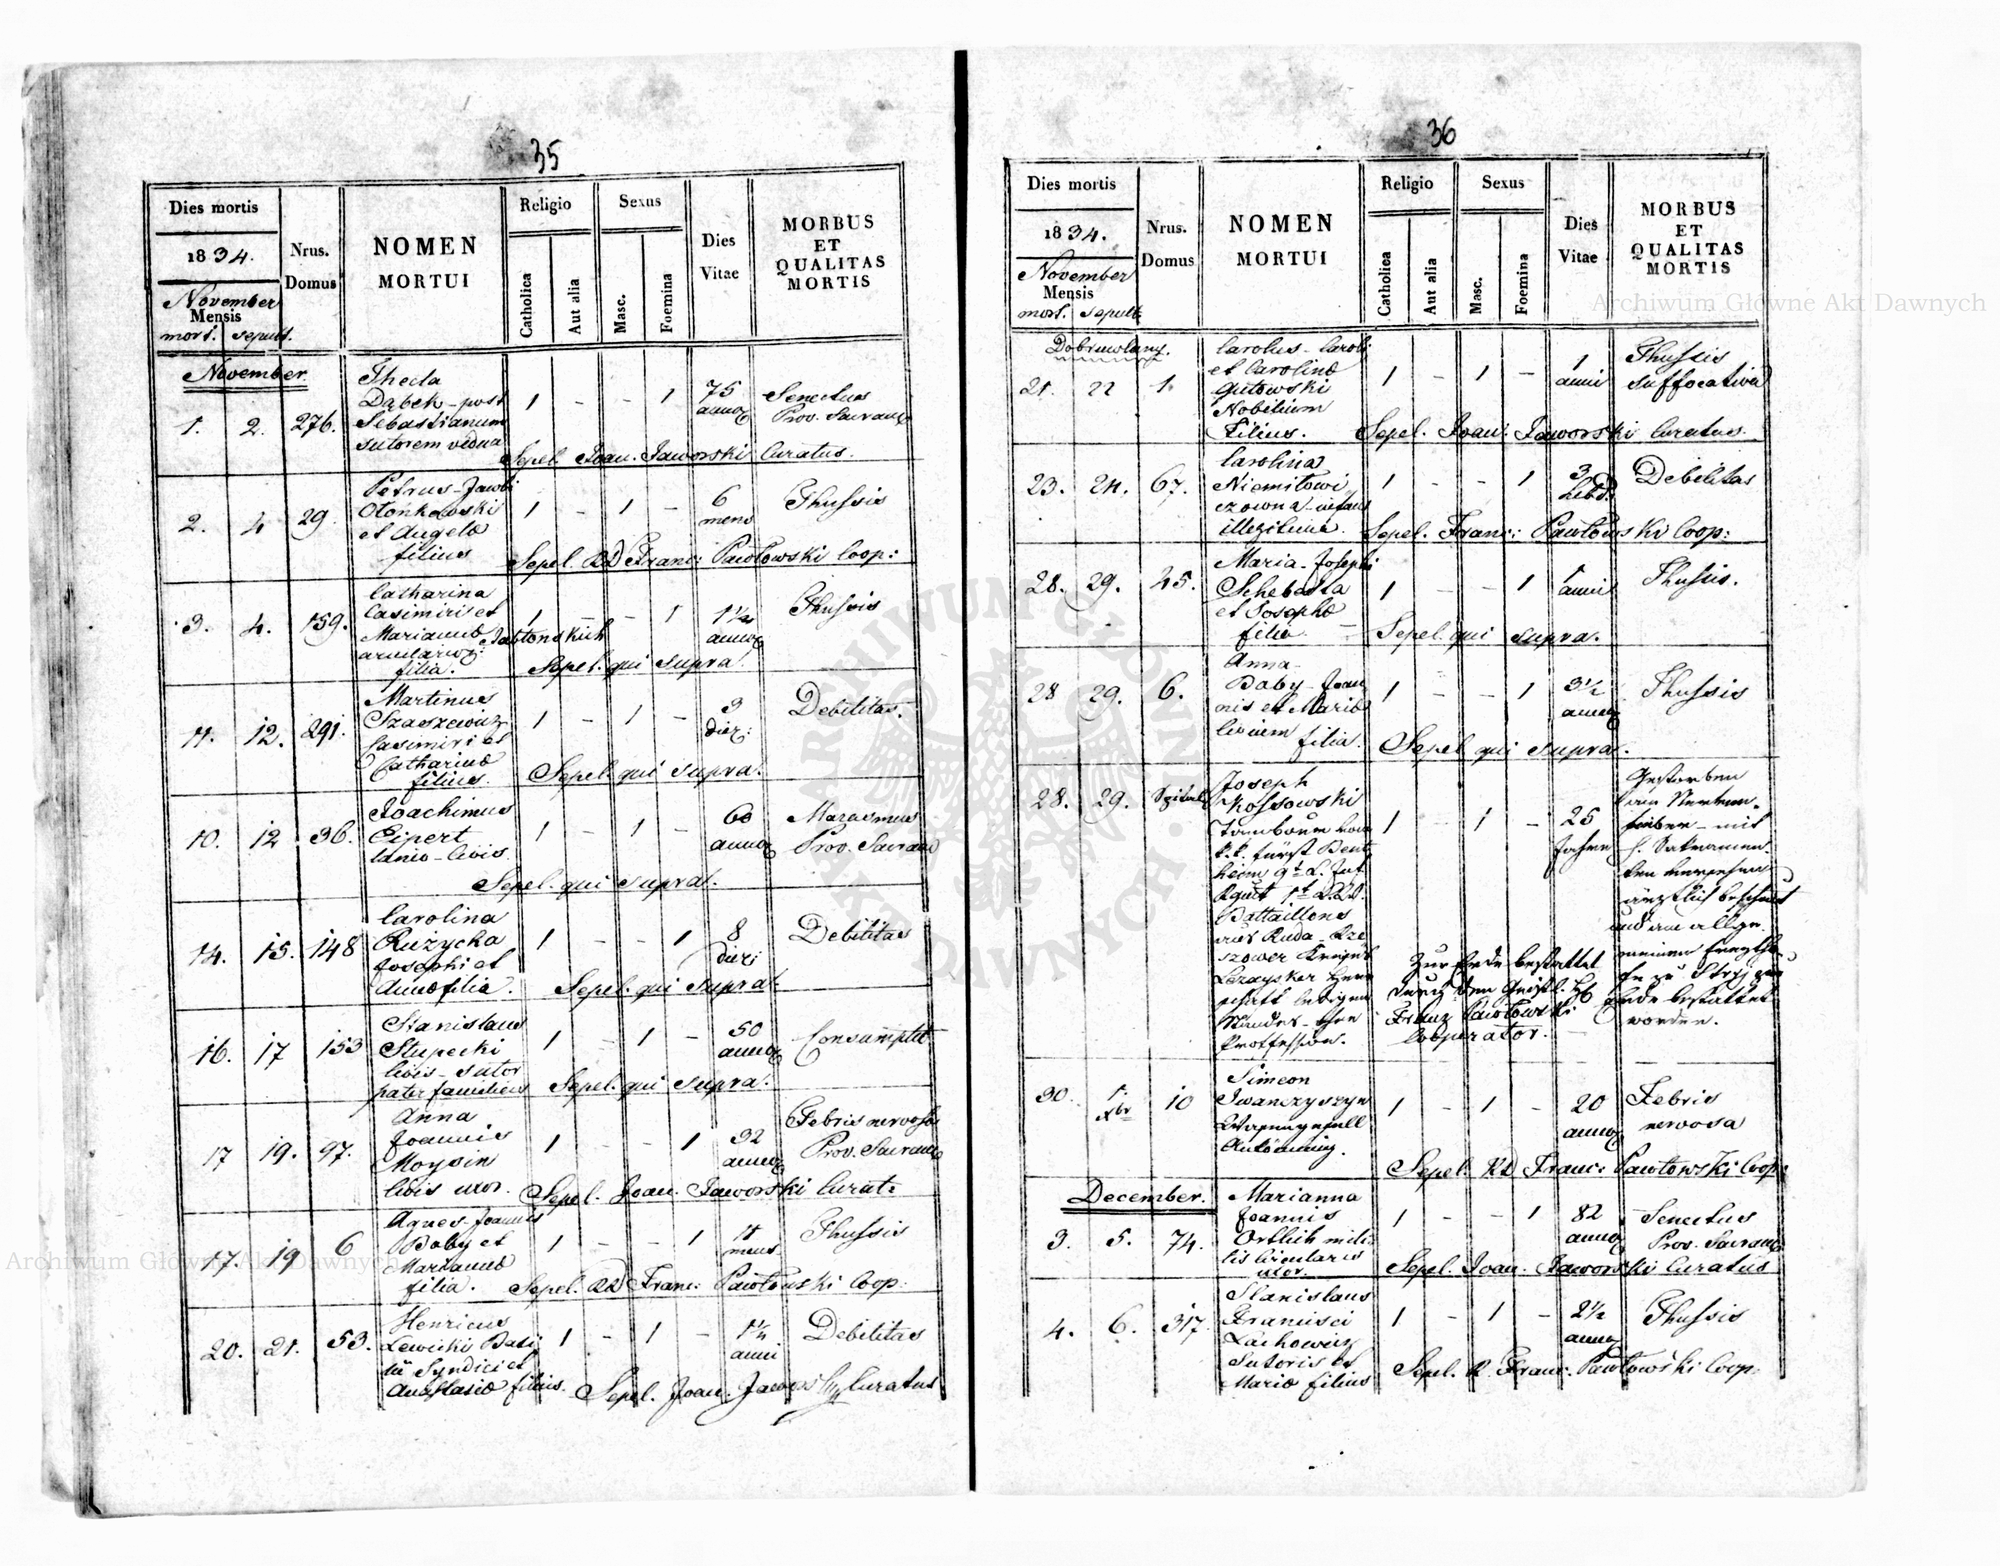 35
Dies mortis
1834.
November
Mensis
mort. sepult.
Nrus.
Domus
NOMEN
MORTUI
Religio
Catholica
Aut alia
Sexus
Masc.
Foemina
Dies
Vitae
MORBUS
ET
QUALITAS
MORTIS
November
1. 2. 276.
Thecla
Dąbek - post
Sebastianum
sutorem vidua
1 - - 1
75
annor
Senectus
Prov. Sacram
Sepel. Joan. Jaworski Curatus.
2. 4 29
Petrus - Jacobi
et Angela
filius
1 - 1 -
6
mens
Thussis
Sepel. RD Franc: Pawłowski Coop:
3. 4. 159.
Catharina
Casimiri et
Marianna Jabłonskich
filia.
1 - - 1
1½
annor
Thussis
Sepel. qui supra.
11. 12. 291.
Martinus
Szaszewicz
Casimiri et
Catharina
filius.
1 - 1 -
3
dier:
Debilitas.
Sepel. qui supra.
10. 12 36.
Joachimus
Eipert
lanio - civis.
1 - 1 -
60
annor
Marasmus
Prov. Sacram
Sepel. qui supra.
14. 15. 148
Carolina
Rużycka
Josephi et
Anna filia.
1 - - 1
8
dier:
Debilitas
Sepel. qui supra.
16. 17 153
Stanislaus
Słupecki
civis - sutor
pater familiens
1 - 1 -
50
annor
Consumptio
Sepel. qui supra.
17 19. 97.
Anna
Joannis
Moysin
civis uxor.
1 - - 1
32
annor
Febris nervosa
Prov. Sacram
Sepel. Joan. Jaworski Curat:
17. 19 6
Agnes - Joannis
Baby et
Marianna
filia.
1 - - 1
mens
Thussis
Sepel. RD Franc: Pawłowski Coop:
20. 21. 53.
Henricus
Lewicki Basi
lii Syndici et
Anastasia filius.
1 - 1 -
1¼
anni
Debilitas
Sepel. Joan. Jaworski Curatus
36
Dies mortis
1834.
November
Mensis
mort. sepult
Nrus.
Domus
NOMEN
MORTUI
Religio
Catholica
Aut alia
Sexus
Masc.
Foemina
Dies
Vitae
MORBUS
ET
QUALITAS
MORTIS
21. 22 1.
Carolus - Caroli
et Carolina
Gutowski
Nobilium
Filius.
1 - 1 -
1
anni
Thussis
suffocativa
Sepel. Joan. Jaworski Curatus.
23. 24. 67.
Carolina
Niemitowi
czowna - infans
illegitima.
1 - - 1
3
hebd.
Debilitas
Sepel. Franc: Pawłowski Coop:
28. 29. 45.
Maria - Josephi
Schebesta
et Josepha
filia
1 - - 1
1
anni
Thussis.
Sepel. qui supra.
28 29. 6.
Anna
Baby - Joan
nis et Maria
civium filia.
1 - - 1
3½
annor
Thussis
Sepel. qui supra.
28. 29. Spital
Joseph
Kossowski
Tambour vom
k.k. fürst Bent
heim
Battaillons
aus Ruda - Rze
szower Kreises
ledigen
Standes - ohne
Proffession.
1 - 1 -
25
Jahre
Gestorben
am Nerven-
fieber - mit
h. Sakramen-
ten versehen
ärztlich beschaut
und am allge
meinen
zu Stryj zur
Erde bestattet
worden.
Zur Erde bestattet
durch den Geistl. H
Franz Pawłowski
Cooperator.
30. 1. Xbr 10
Simeon
Iwanczyszyn
1 - 1 -
20
annor
Febris
nervosa
Sepel. RD Franc: Pawłowski Coop:
December.
3. 5. 74.
Marianna
Joannis
Ortlich mili
tis Circularis
uxor.
1 - - 1
82
annor
Senectus
Prov. Sacram
Sepel. Joan. Jaworski Curatus
4. 6. 317.
Stanislaus
Francisci
Lachowicz
sutoris et
Maria filius
1 - 1 -
2½
annor
Thussis
Sepel. R. Franc. Pawłowski Coop.
Archiwum Główne Akt Dawnych
Archiwum Główne Akt Dawnych
ARCHIWUM GŁÓWNE AKT DAWNYCH